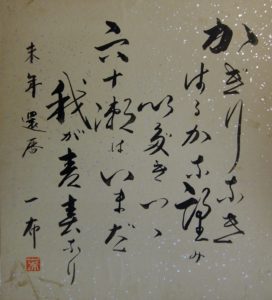 かぎりなき
はるかな望み
いだきつゝ
六十瀬はいまだ
我が青春なり
未年還暦 一布